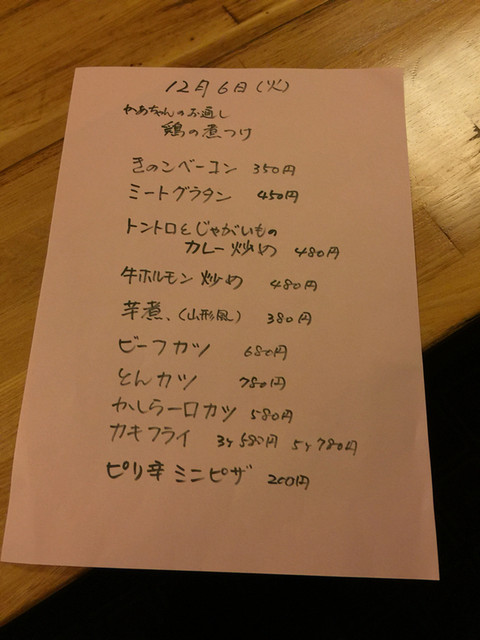 12月6日(火)
かあちゃんのお通し
鶏の煮つけ
きのこベーコン 350円
ミートグラタン 450円
トントロとじゃがいもの
カレー炒め 480円
牛ホルモン炒め 480円
芋煮、(山形風) 380円
ビーフカツ 680円
とんカツ 780円
かしら一口カツ 580円
カキフライ 3ヶ580円 5ヶ780円
ピリ辛ミニピザ 200円